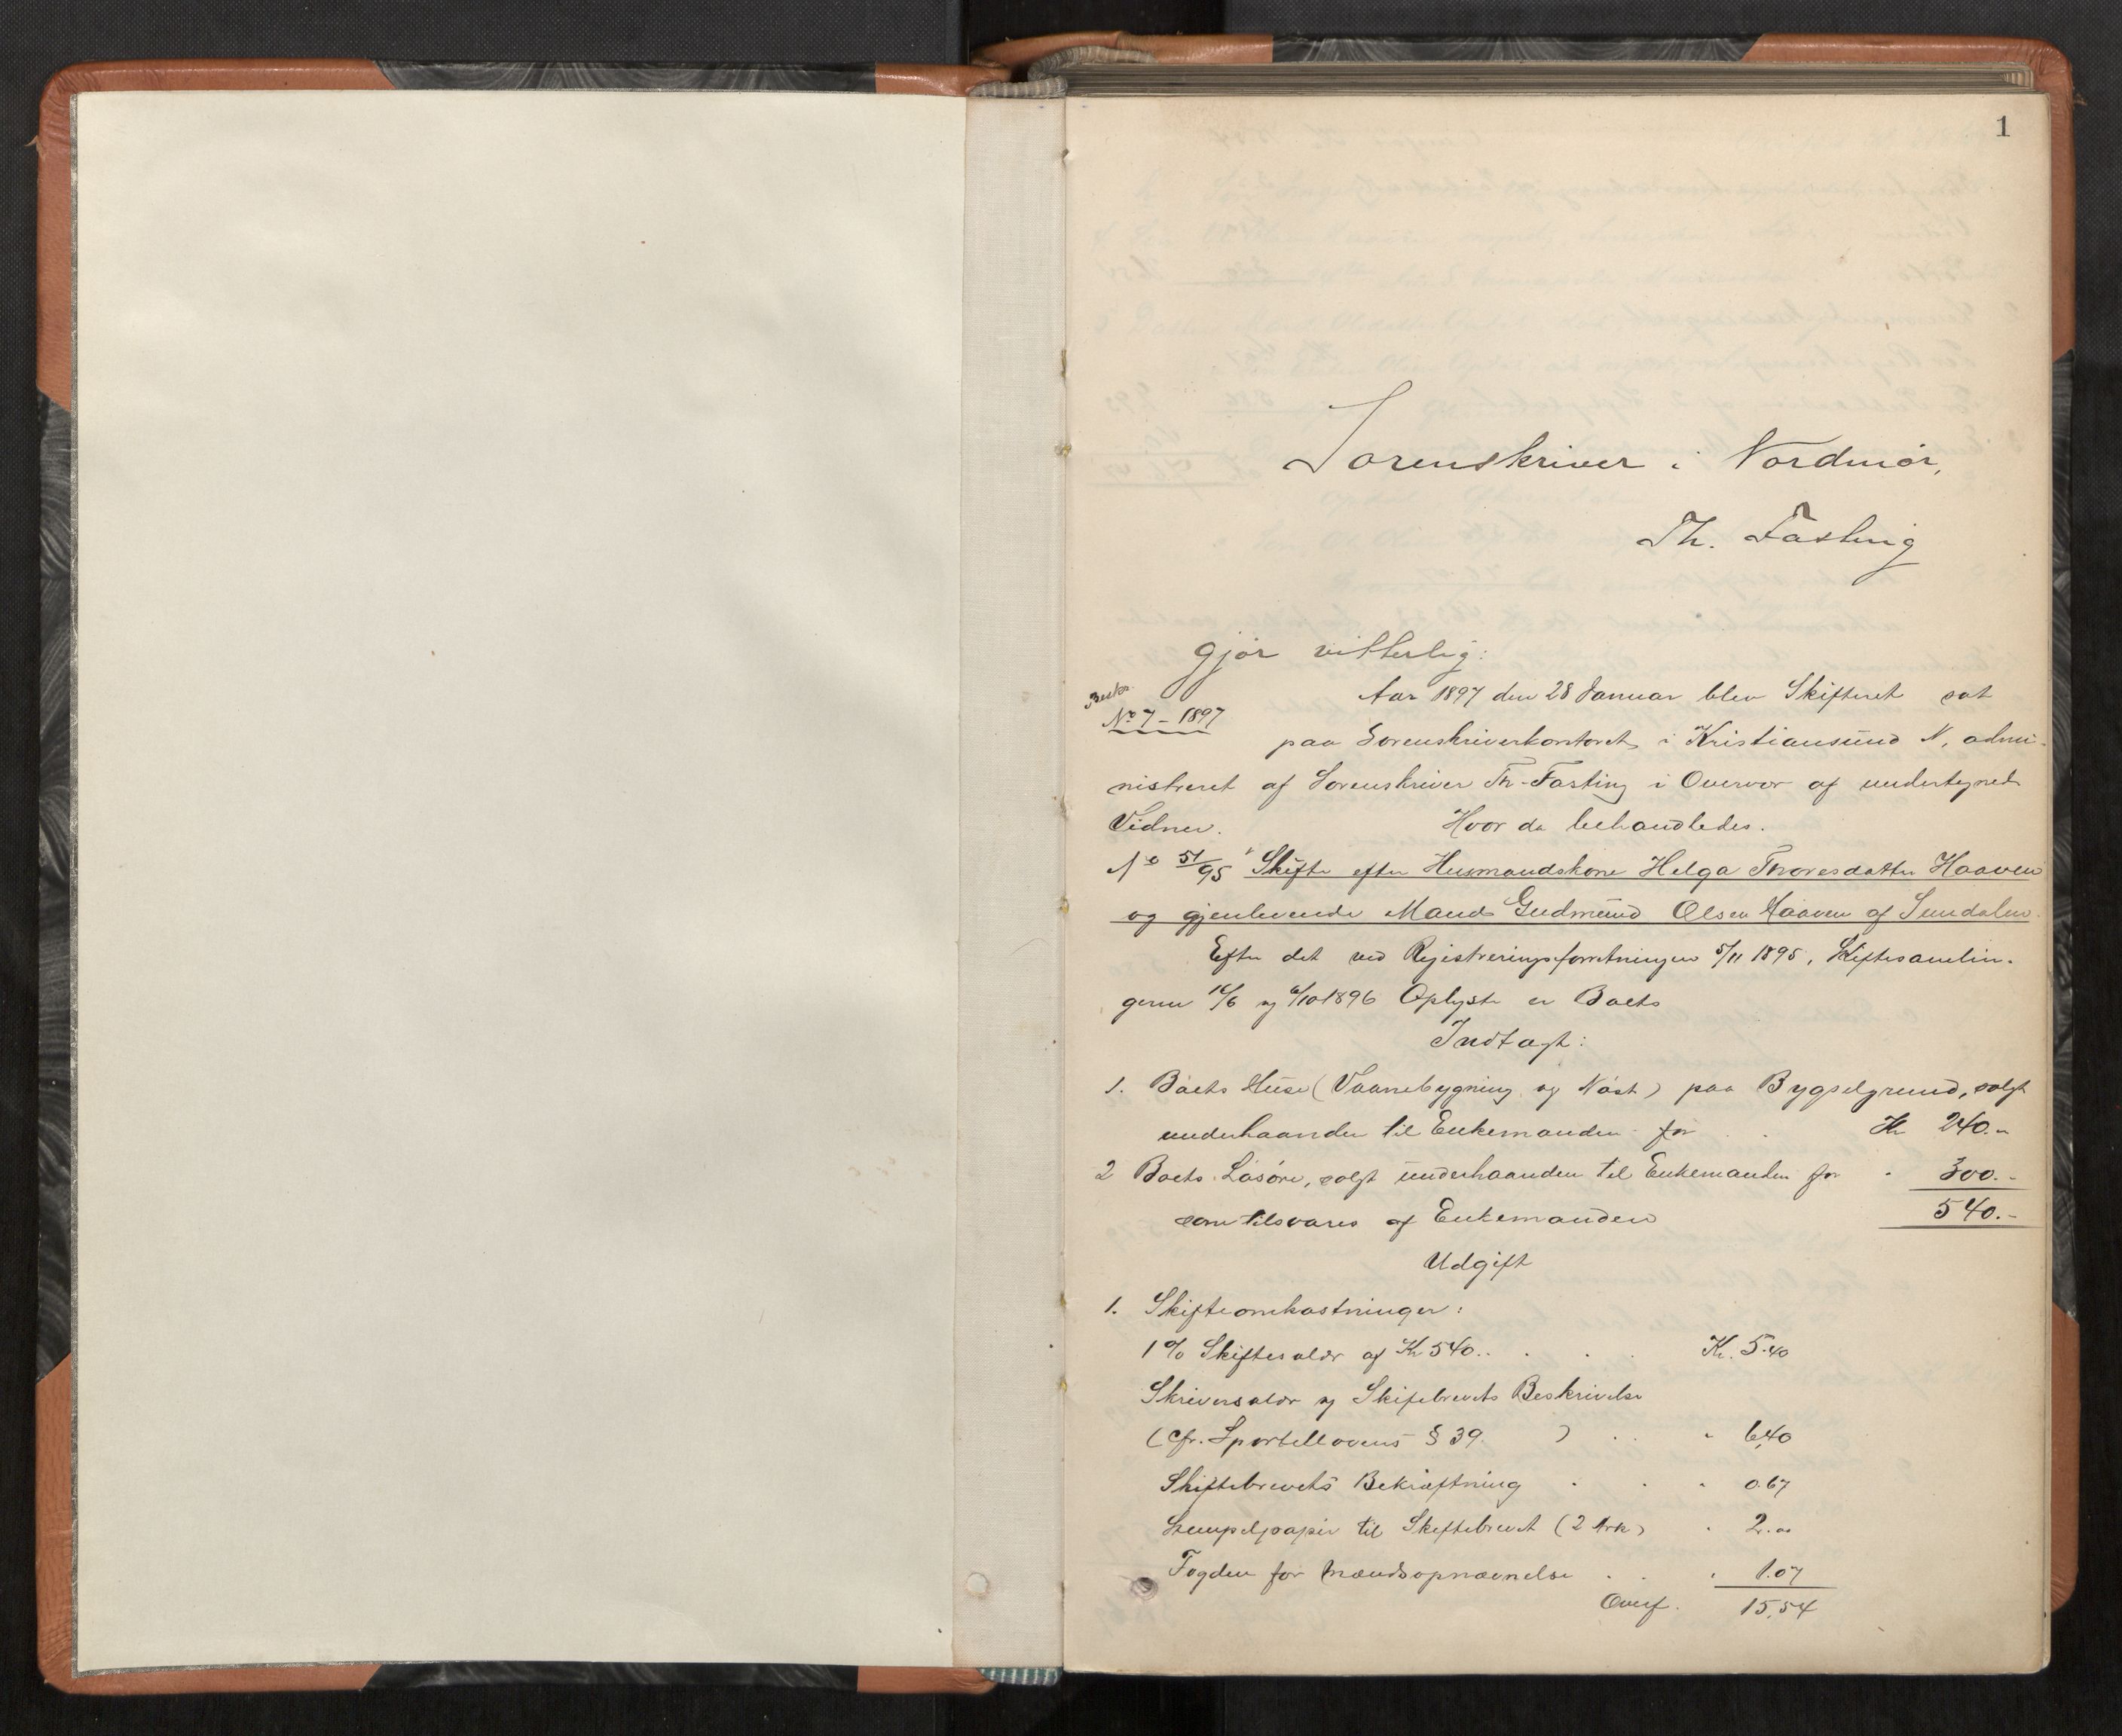 1
Sorenskriver i Nordmør,
Th. Fasting
gjør vitterlig:
No 7 - 1897
Aar 1897 den 28 Januar blev Skifteret sat
paa Sorenskriverkontoret i Kristiansund N, admi-
nistreret af Sorenskriver Th. Fasting i Overvær af undertegnede
Vidner. Hvor da behandledes.
No 51/95 Skifte efter Husmandskone Helga Thoresdatter Haaven
og gjenlevende Mand Gudmund Olsen Haaven af Sundalen.
Efter det ved Registreringsforretningen 5/11 1895, Skiftesamlin-
gerne 16/6 og 6/10 1896 Oplyste er Boets
Indtægt:
1. Boets Huse (Vaanebygning og Nøst) paa Bygselgrund, solgt
underhaanden til Enkemanden for . . Kr 240.-
2 Boets Løsøre, solgt underhaanden til Enkemanden for " 300.-
som tilsvares af Enkemanden 540.-
Udgift
1. Skifteomkostninger:
1 % Skiftesalær af Kr 540.. . . . Kr. 5.40
Skriversalær og Skiftebrevets Beskrivelse
(Cfr. Sportellovens § 39. ) . . " 6,40
Skiftebrevets Bekræftning . . " 0.67
Stempelpapir til Skiftebrevet (2 Ark) " 2.00
Fogden for Mændsopnævnelse . . " 1.07
Overf. 15,54